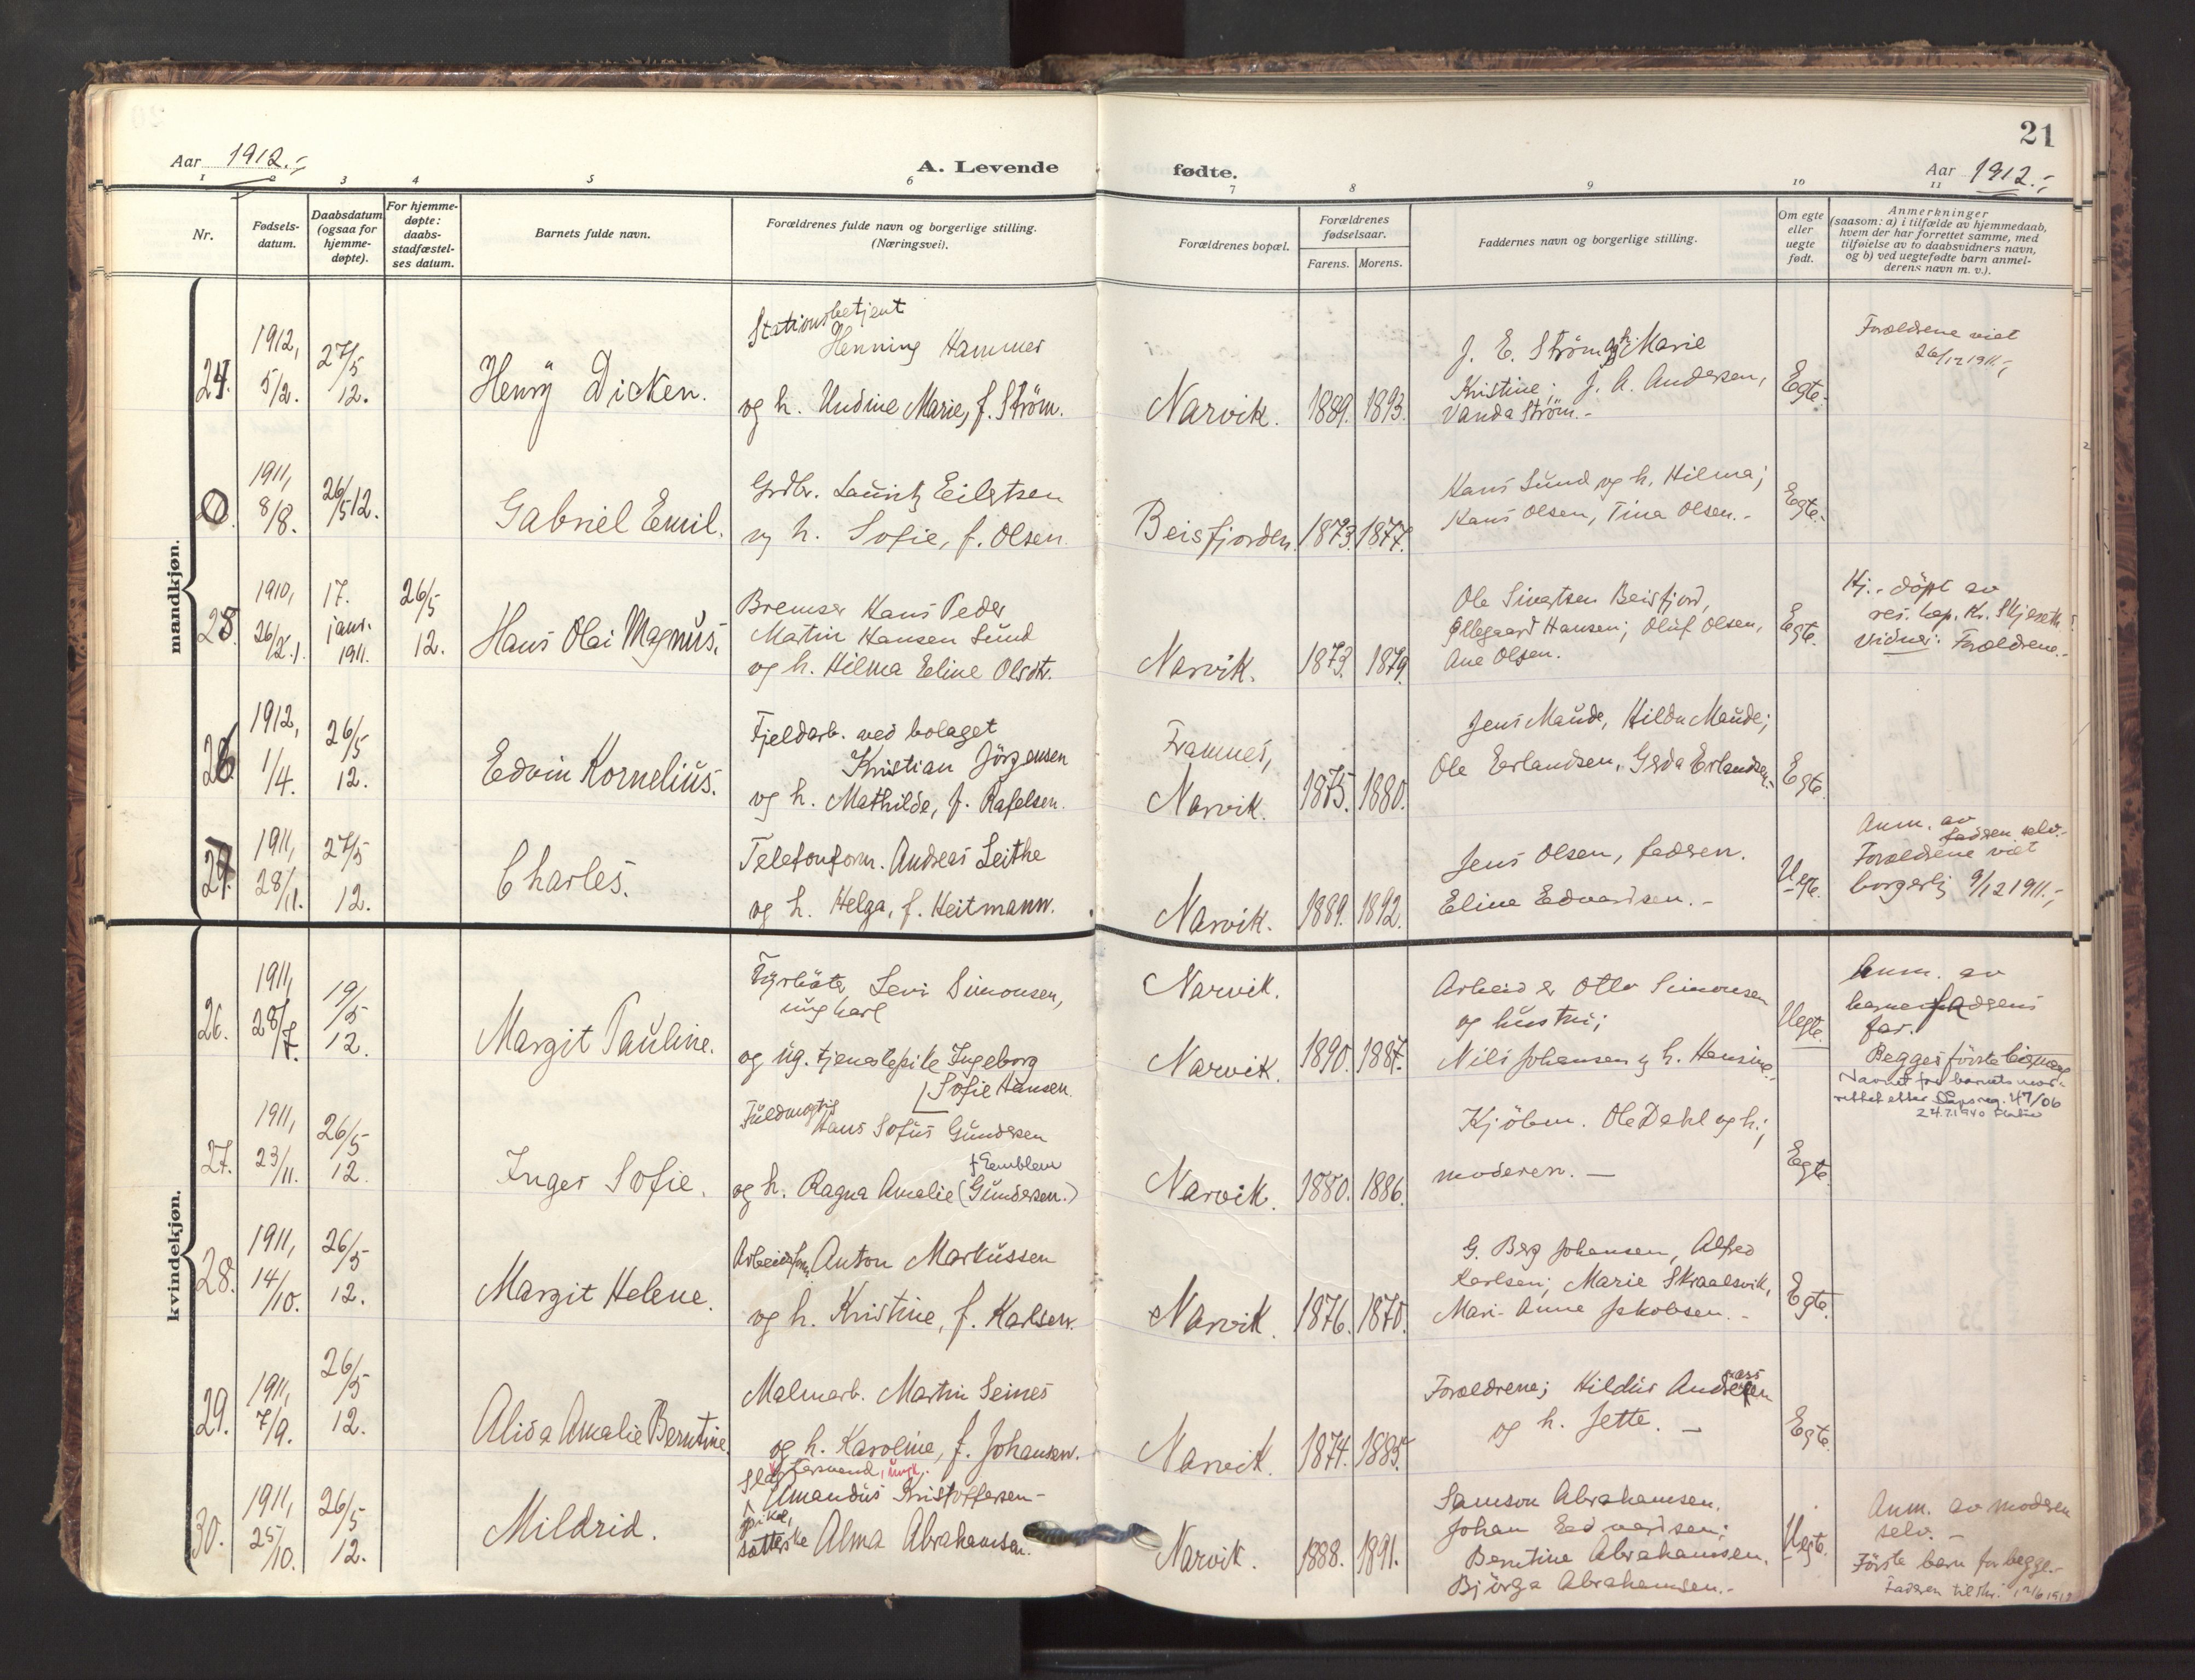 21
Aar 1912.-,
A. Levende
fødte.
Aar 1912.-,
1 2 3 4 5 6 7 8 9 10 11
Nr.
Fødsels-
datum.
Daabsdatum
(ogsaa for
hjemme-
døpte).
For hjemme-
døpte:
daabs-
stadfæstel-
ses datum.
Barnets fulde navn.
Forældrenes fulde navn og borgerlige stilling.
(Næringsvei).
Forældrenes bopæl.
Forældrenes
fødselsaar.
Farens.
Morens.
Faddernes navn og borgerlige stilling.
Om egte
eller
uegte
født.
Anmerkninger
(saasom: a) i tilfælde av hjemmedaab,
hvem der har forrettet samme, med
tilføielse av to daabsvidners navn,
og b) ved uegtefødte barn anmel-
derens navn m. v.).
mandkjøn.
24.
1912,
5/2.
27/5
12.
Henry Dicken.
Stationsbetjent
Henning Hammer
og h. Undine Marie, f. Strøm.
Narvik.
1889.
1893.
J. E. Strøm Marie
Kristine; J. A. Andersen,
Vanda Strøm.-
Egte.
Forældrene viet
26/12 1911.-,
1911,
8/8.
26/5 12.
Gabriel Emil.
Grdbr. Lauritz Eilertsen
og h. Sofie, f. Olsen.
Beisfjorden.
1873.
1877.
Hans Sund og h. Hilma;
Hans Olsen, Tina Olsen.-
Egte.-
25.
1910,
26/12.
17.
janr.
1911.
26/5
12.
Hans Olai Magnus.
Bremser Hans Peder
Matin Hansen Sund
og h. Hilma Eline Olsdtr.
Narvik.
1873.
1879.
Ole Sivertsen Beisfjord,
Ellegaard Hansen; Oluf Olsen,
Ane Olsen.
Egte.
Hj.- döpt av
res. kap. Kr. Skjeseth.
Vidner: Forældrene.-
26
1912,
1/4.
26/5
12.
Edvin Kornelius.
Fjeldarb. ved bolaget
Kristian Jörgensen
og h. Mathilde, f. Rafelsen.
Framnes,
Narvik.
1875.
1880.
Jens Maude, Hilda Maude;
Ole Erlandsen, Gerda Erlandsen.-
Egte.
27.
1911,
28/11.
27/5
12.
Charles.
Telefonform. Andreas Leithe
og h. Helga, f. Heitmann.
Narvik.
1889.
1892.
Jens Olsen, faderen.
Eline Edvardsen.-
Uegte.
Anm. av
faderen selv.-
Forældrene viet
borgerlig 9/12 1911.-,
kvindekjøn.
26.
1911,
28/7.
19/5
12.
Margit Pauline.
Fyrböter Levi Simonsen,
ungkarl
og ug. tjenestepike Ingeborg
Sofie Hansen.
Narvik.
Narvik.
1890.
1887.
Arbeider Otto Simonsen
og hustru;
Nils Johansen og h. Hansine.
Uegte.
Anm. av
faderens
far.
Begges förste barn
Navnet paa barnets mor
rettet efter Dåpsreg. 47/06
24.7.1940
27.
1911,
23/11.
26/5
12.
Inger Sofie.
Fuldmægtig
Hans Sofus Gundersen
f Eemblem
og h. Ragna Amalie (Gundersen.)
Narvik.
1880.
1886.
Kjöbm. Ole Dahl og h.;
moderen.—
Egte
28.
1911,
14/10.
26/5
12.
Margit Helene.
Arbeidsfm. Anton Markussen
og h. Kristine, f. Karlsen.
Narvik.
1876.
1870.
G. Berg Johansen, Alfred
Karlsen; Marie Skraalsvik,
Mari-Anne Jakobsen.-
Egte.
29.
1911,
7/9.
26/5
12.
Alida Amalie Berntine.
Malmarb. Martin Seines
og h. Karoline, f. Johansen.
Narvik.
1874.
1885.
Forældrene; Hildur Andreassen
og h. Jette.—
Egte.
30.
1911,
25/10.
26/5
12.
Mildrid.
Slagtersvend, ungk.
Amandus Kristoffersen-
pike,
Alma Abrahamsen.
Narvik.
1888.
1891.
Samson Abrahamsen,
Johan Edvardsen;
Berntine Abrahamsen,
Björga Abrahamsen.-
Uegte.
Anm. av moderen
selv.-
Förste barn for begge.-
Faderen tilskr. 12/6 1912